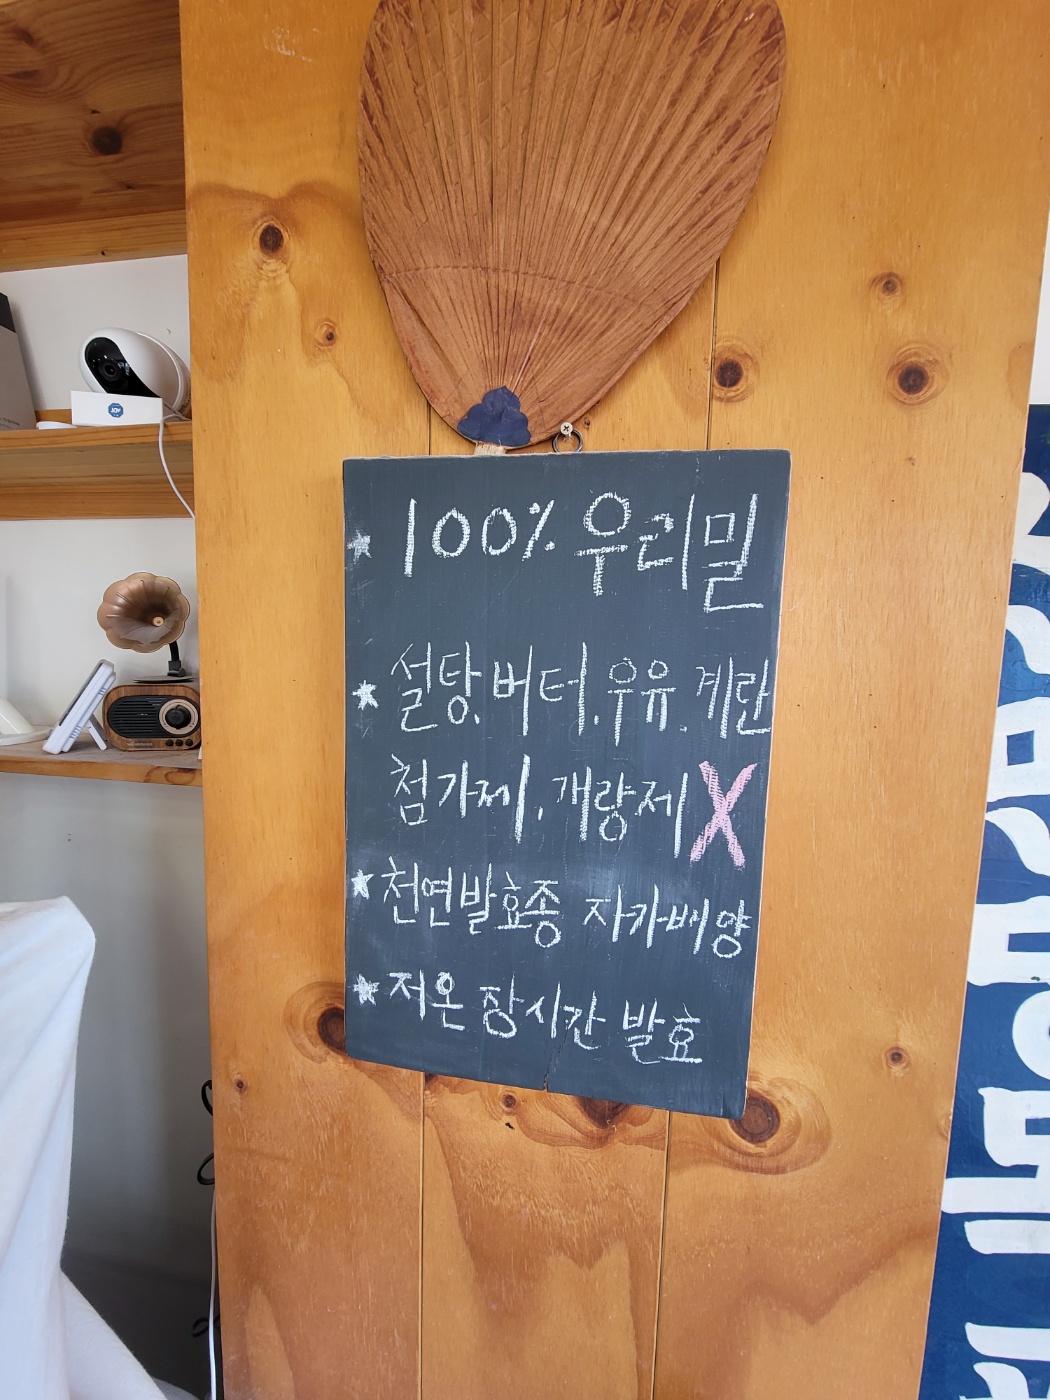 ★ 100% 우리밀
★ 설탕.버터.우유.계란
첨가제.개량제 X
★ 천연발효종 자가배양
★ 저온 장시간 발효
JOY